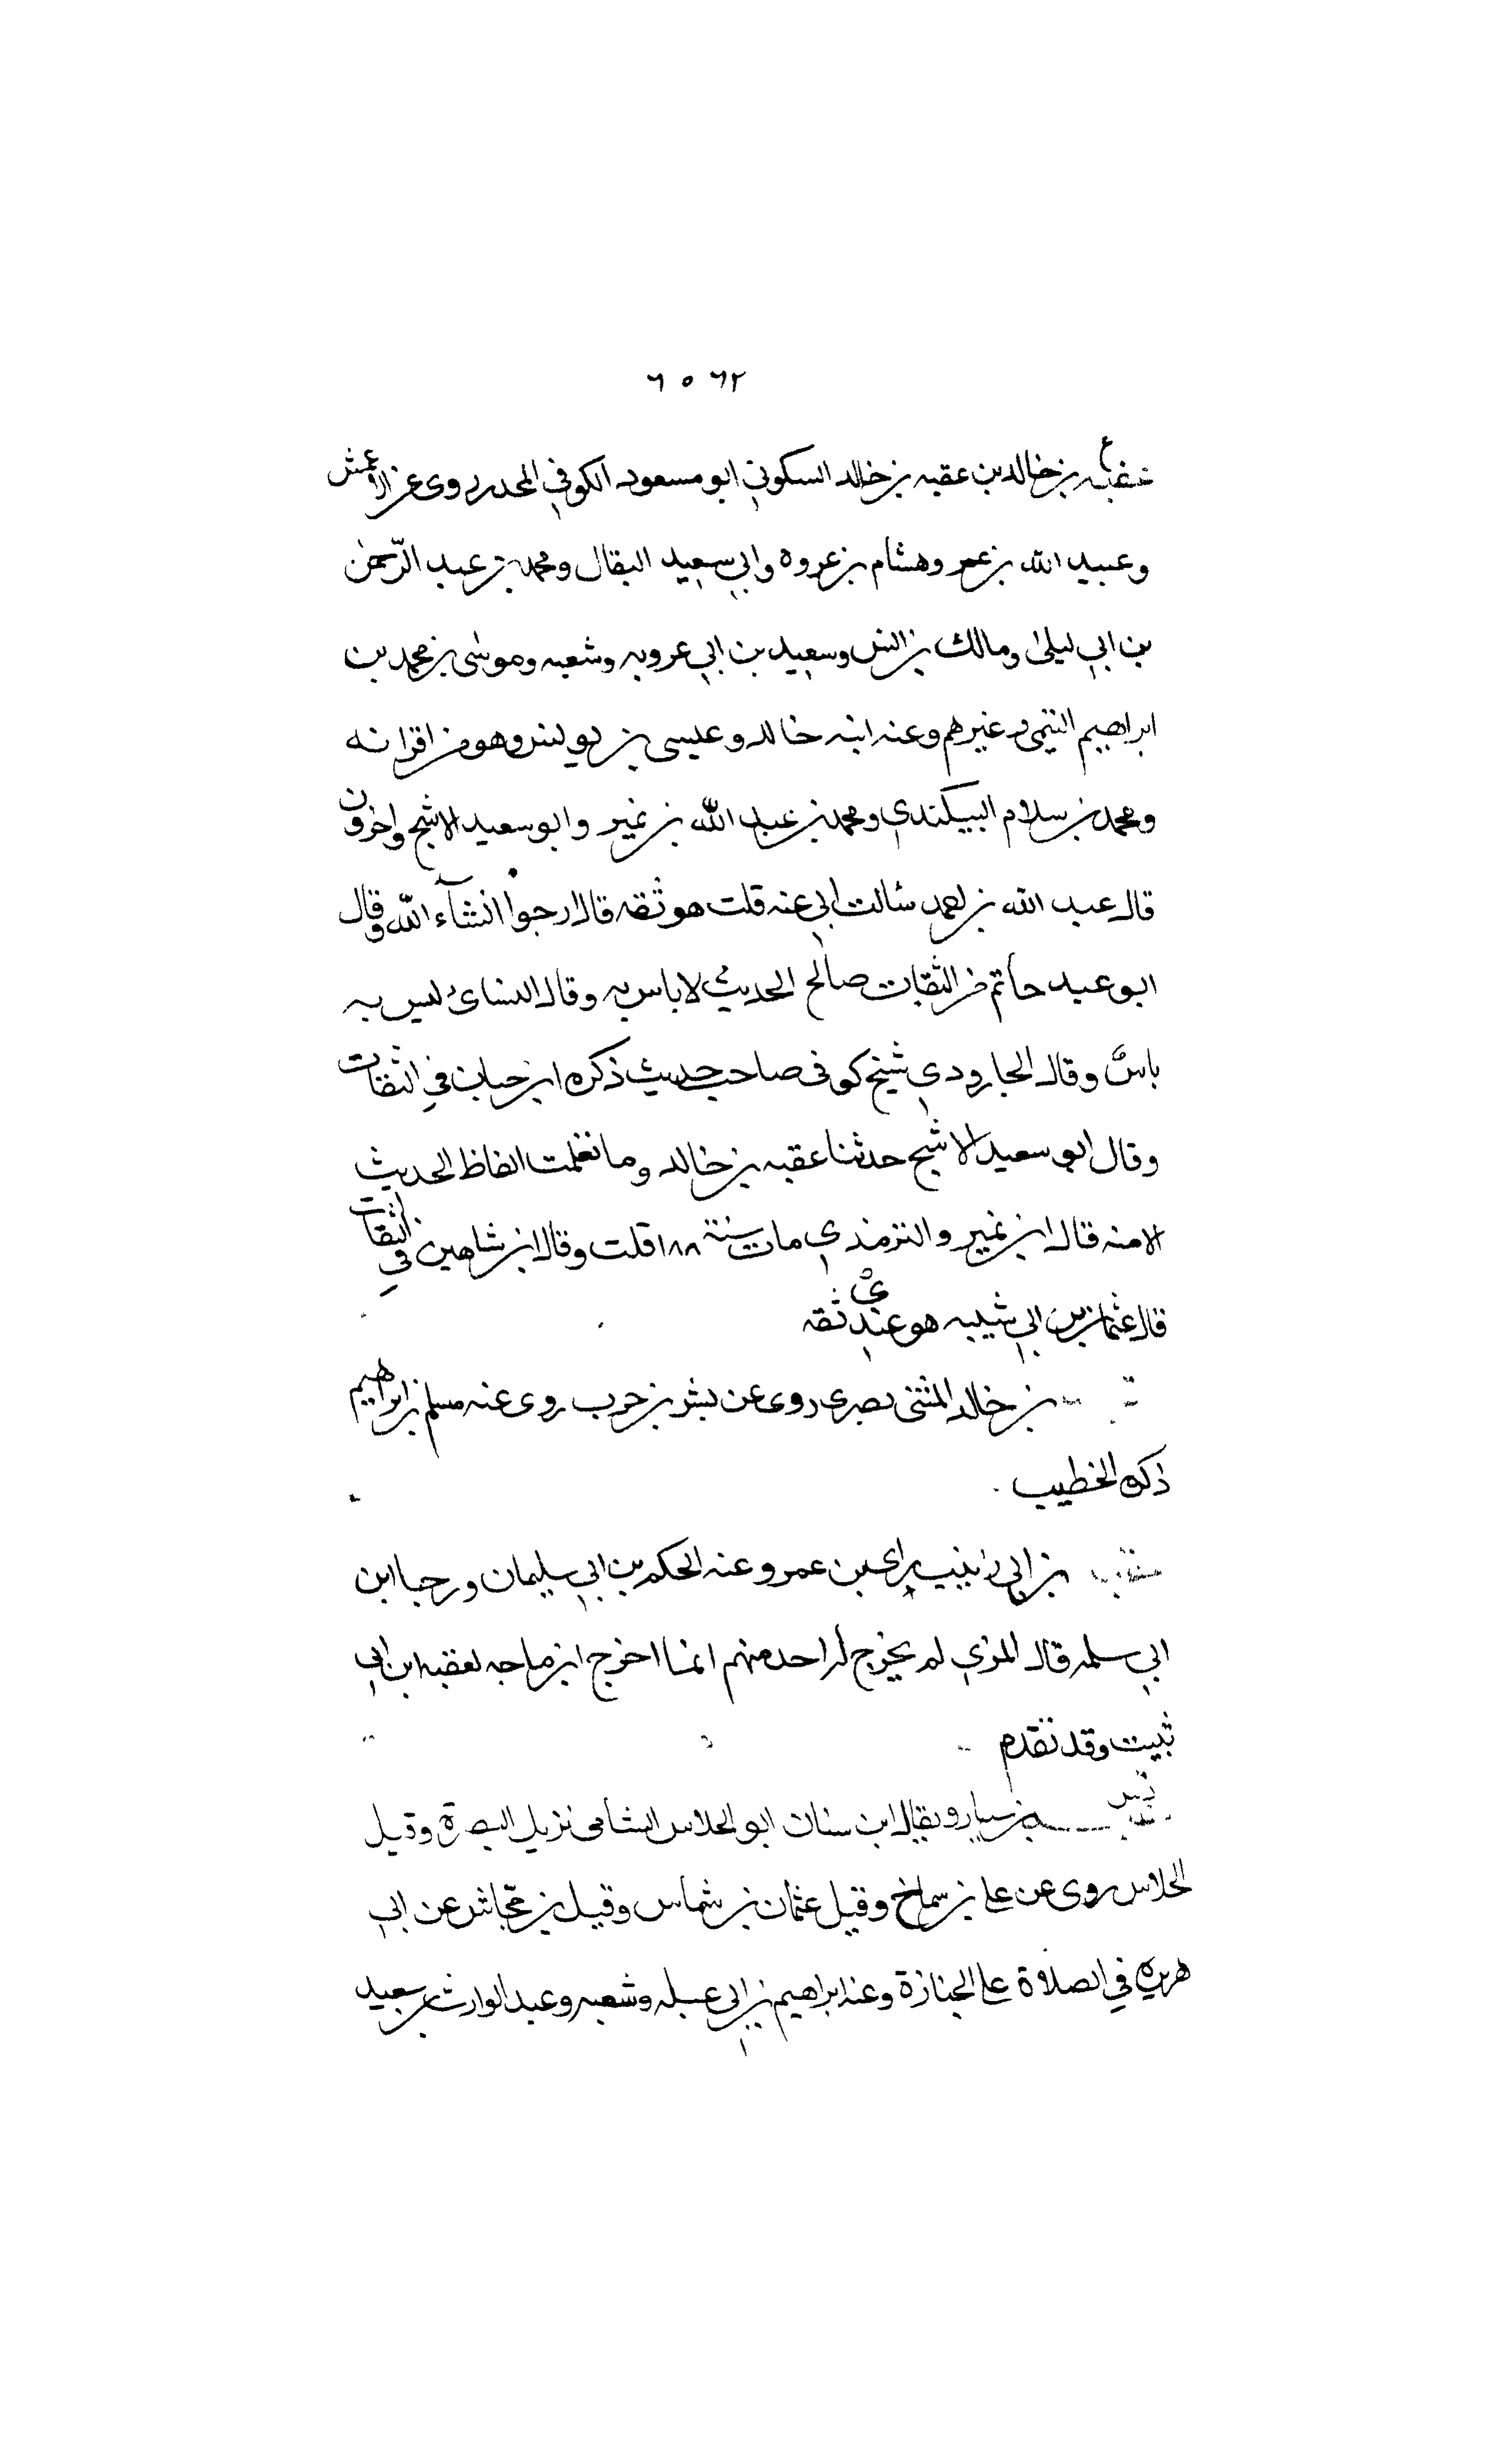 ٦٢ ٥ ٦
ع
عقبه بن خالد بن عقبه بن خالد السكوني ابو مسعود الكوفي المجدر روى عن الاعمش
وعبيد الله بن عمر وهشام بن عروه وابي سعيد البقال ومحمد بن عبد الرّحمن
بن ابي ليلى ومالك بن انس وسعيد بن ابي عروبه وشعبه وموسى بن محمد بن
ابراهيم التيمي وغيرهم وعنه ابنه خالد وعيسى بن يونس وهو من اقرانه
ومحمد بن سلام البيكندي ومحمد بن عبد الله بن نمير وابو سعيد الاشج واخرون
قال عبد الله بن احمد سالت ابي عنه قلت هو ثقه قال ارجوا انشآء اللّه وقال
ابو عبيد حاتم من الثقات صالح الحديث لا باس به وقال النسائ ليس به
باس وقال الجارودي شيخ كوفي صاحب حديث ذكره ابن حبان في الثقات
وقال ابو سعيد الاشج حدثنا عقبه بن خالد وما تعلمت الفاظ الحديث
الا منه قال ابن نمير والترمذي مات سنة ١٨٨ قلت وقال ابن شاهين في الثقات
قال عثمان بن ابي شيبه هو عندي ثقه
بن خالد المثنى بصري روى عن بشر بن حرب روى عنه مسلم بن ابراهيم
ذكره الخطيب
عقبه بن ابي زينب راى بن عمر وعنه الحكم بن ابي سليمان ورجا ابن
ابي سلمه قال المزي لم يخرج له احد منهم انما اخرج ابن ماجه لعقبه ابن ابي
ثبيت وقد تقدم
بن سيار ويقال ابن سنان ابو الجلاس الشامي نزيل البصرة وقيل
الجلاس روى عن علي بن شماخ وقيل عثمان بن شماس وقيل بن جحاش عن ابي
هريره في الصلاة على الجنازة وعنه ابراهيم بن ابي عبله وشعبه وعبد الوارث بن سعيد